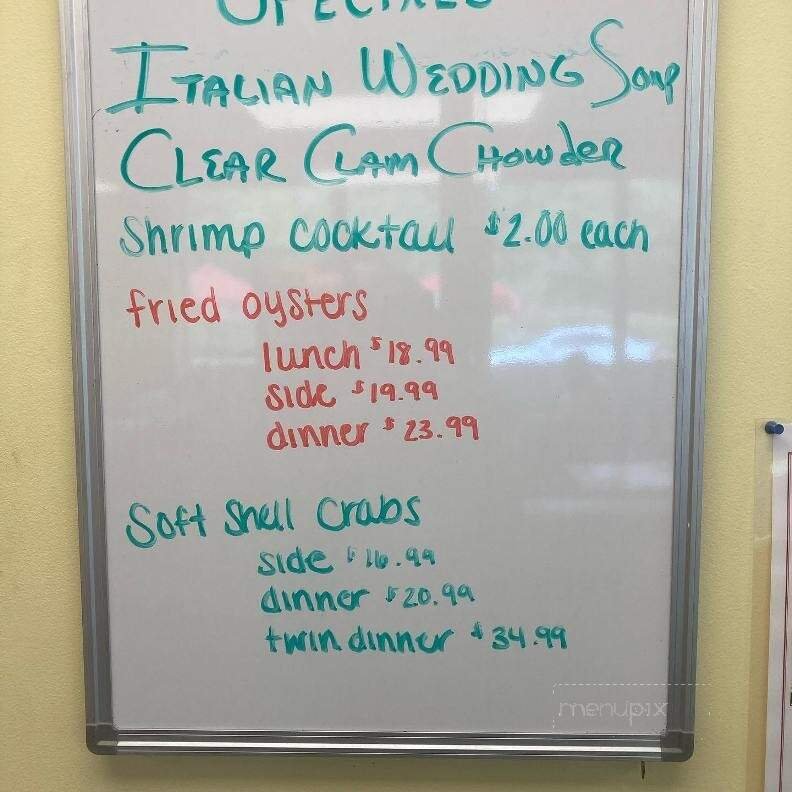 SPECIALS
ITALIAN WEDDING Soup
CLEAR CLAM CHOWder
Shrimp cocktail $2.00 each
fried oysters
lunch $18.99
side $19.99
dinner $23.99
Soft Shell Crabs
side $16.99
dinner $20.99
twin dinner $34.99
menupix